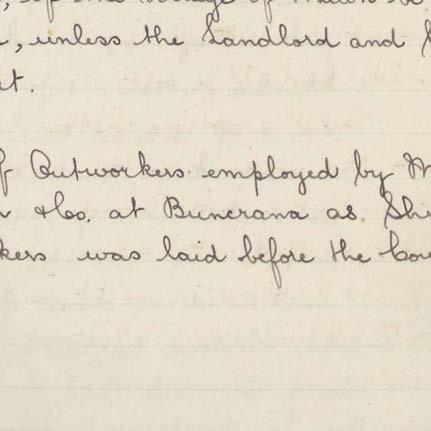 , unless the Landlord and
t.
f Outworkers employed by
& Co. at Buncrana as Shi
kers was laid before the Cou